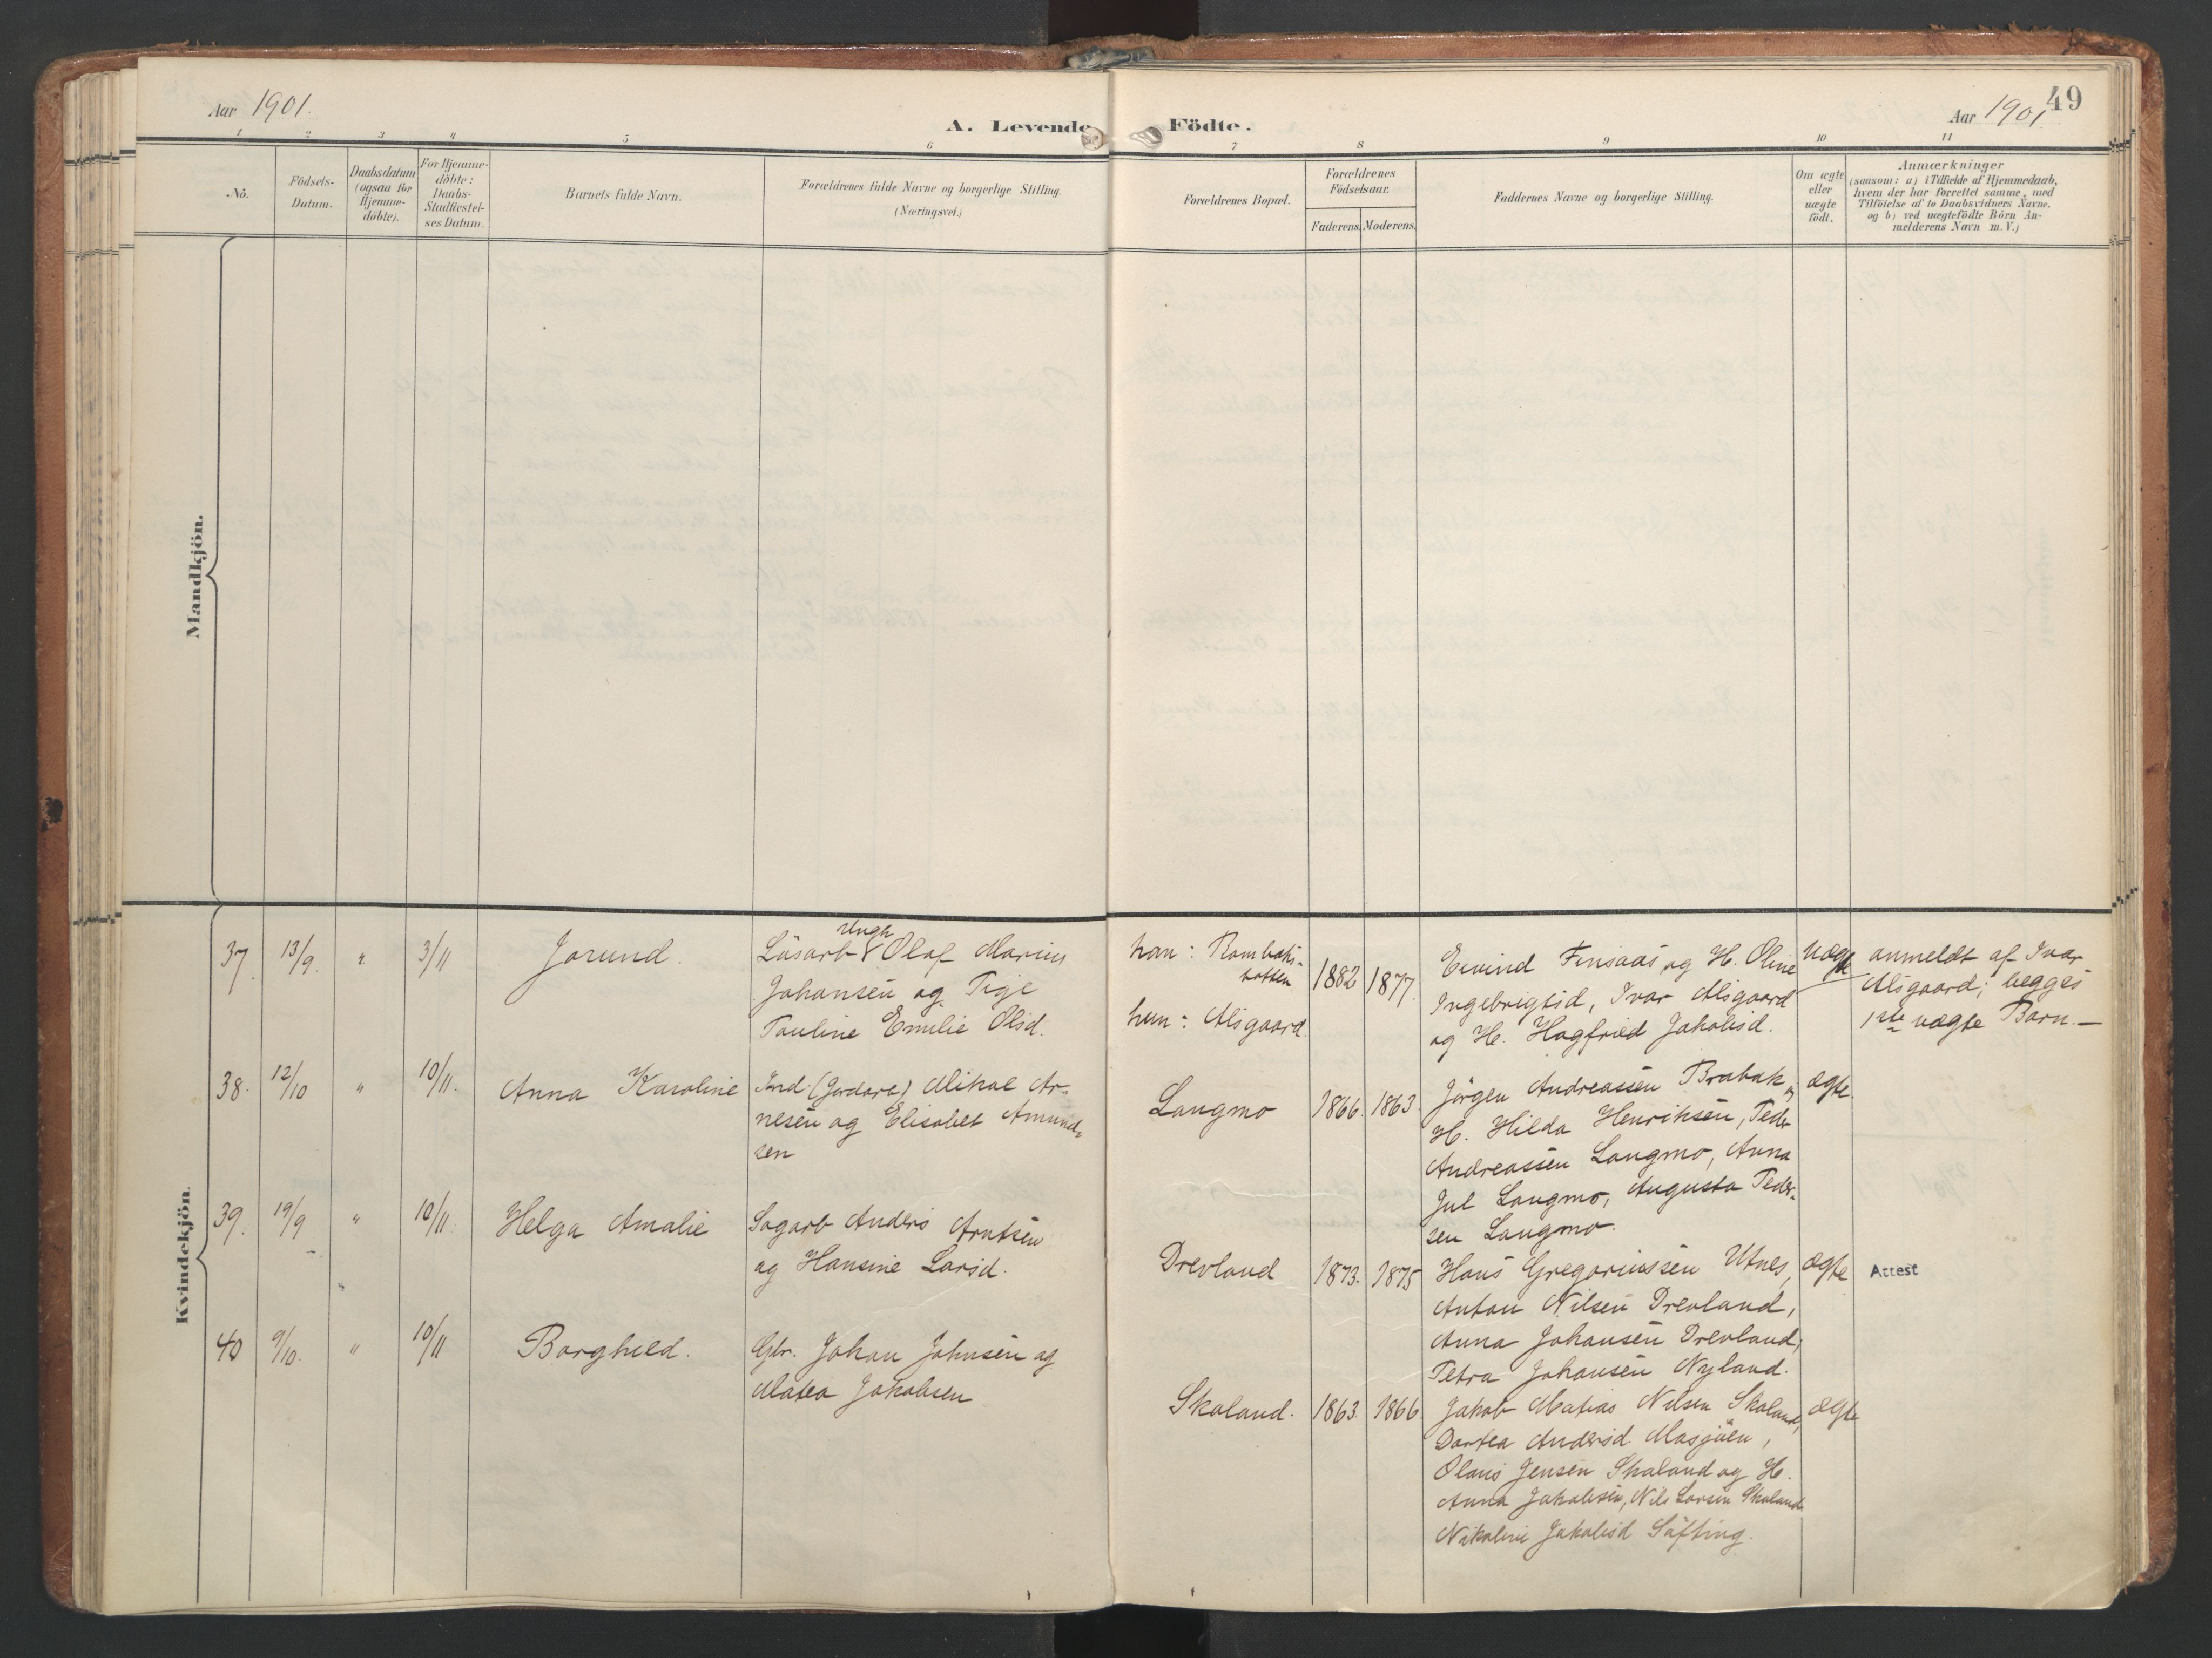 Aar 1901.
A. Levende Födte.
Aar 1901
49
1 2 3 4 5 6 7 8 9 10 11
Nô.
Födsels-
Datum.
Daabsdatum
(ogsaa for
Hjemme-
döbte).
For Hjemme-
döbte:
Daabs-
Stadfæstel-
ses Datum.
Barnets fulde Navn.
Forældrenes fulde Navne og borgerlige Stilling.
(Næringsvei.)
Forældrenes Bopæl.
Forældrenes
Födselsaar.
Faderens. Moderens.
Faddernes Navne og borgerlige Stilling.
Om ægte
eller
uægte
födt.
Anmærkninger
(saasom: a) i Tilfælde af Hjemmedaab,
hvem der har forrettet samme, med
Tilföielse af to Daabsvidners Navne.
og b) ved uægtefödte Börn An-
melderens Navn m. V.)
Mandkjön.
Kvindekjön.
37. 13/9. " 3/11
Jorund.
Ungk
Lösarb Olaf Marius
Johansen og Pige
Pauline Emilie Olsd.
han: Rombaks-
botten
hun: Alsgaard.
1882 1877.
Eivind Finsaas og H. Oline
Ingebrigtsd, Ivar Alsgaard
og H. Hagfried Jakobsd.
uægte
anmeldt af Ivar
Alsgaard; begges
1ste uægte Barn.—
38. 12/10 " 10/11.
Anna Karoline
Ind. (Jordarb) Mikal Ar-
nesen og Elisabet Amund-
sen
Langmo
1866. 1863.
Jörgen Andreassen Brabak og
H. Hilda Henriksen, Peder
Andreassen Langmo, Anna
Jul Langmo, Augusta Peder-
sen Langmo.
ægte.
39. 19/9 " 10/11.
Helga Amalie
Sagarb Anders Arntsen
og Hansine Larsd.
Drevland
1873. 1875
Hans Gregoriussen Utnes,
Anton Nilsen Drevland,
Anna Johansen Drevland,
Petra Johansen Nyland.
ægte
Attest
40 9/10. " 10/11
Borghild.
Gbr. Johan Johnsen og
Matea Jakobsen
Skaland.
1863. 1866.
Jakob Matias Nilsen Skaland,
Dortea Andersd. Mosjöen,
Olaus Jensen Skaland og H.
Anna Jakobsen, Nils Larsen Skaland
Nikoline Jakobsd Söfting.
ægte